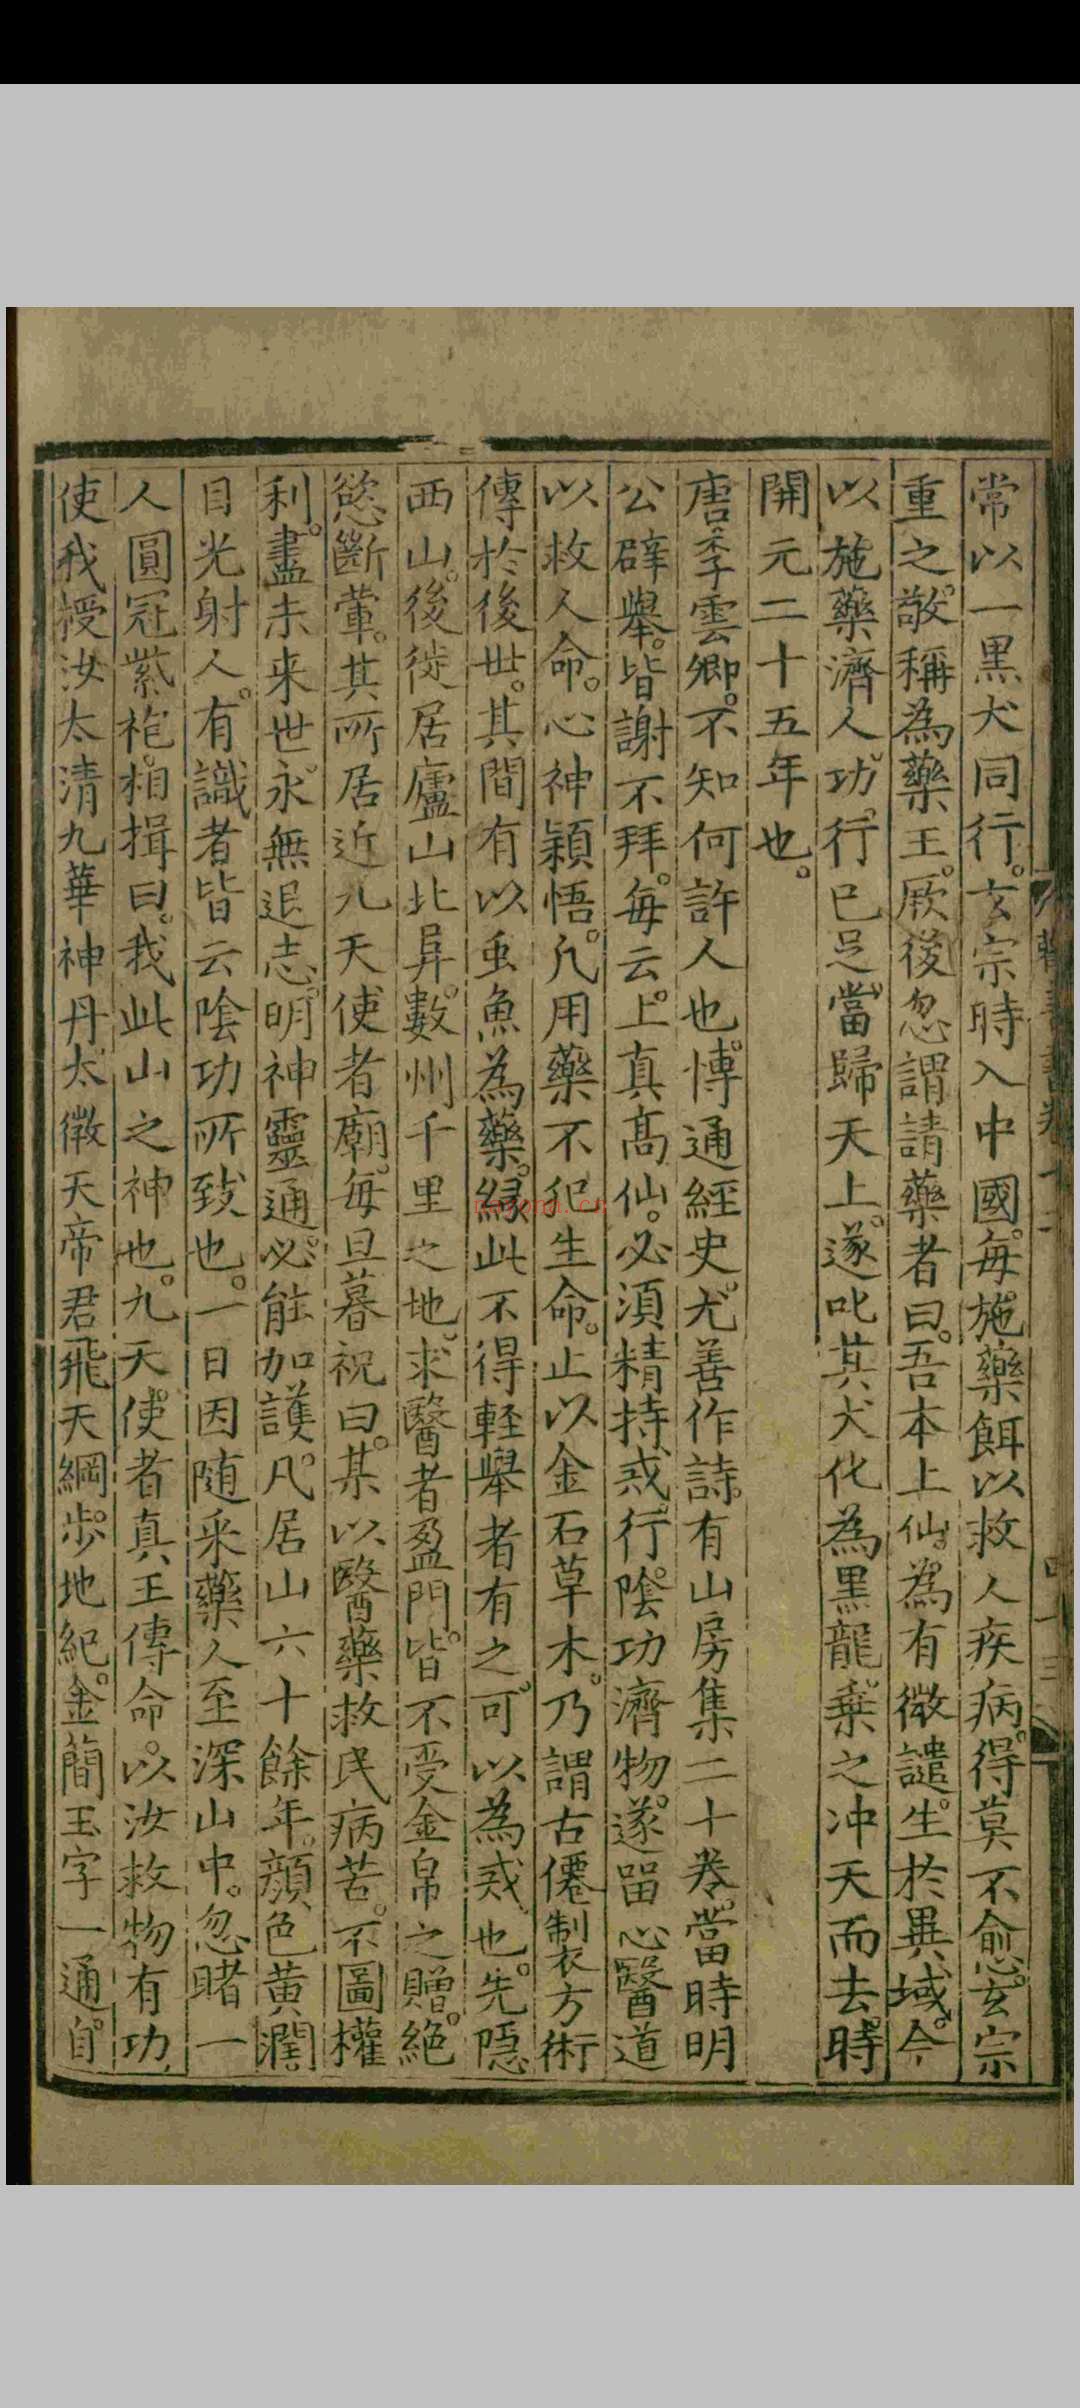 常以一黑犬同行。玄宗時入中國。每施藥餌以救人疾病。得莫不愈。玄宗
重之。敬稱為藥王。厥後忽謂請藥者曰。吾本上仙。為有微譴。生於異域。今
以施藥濟人。功行已足。當歸天上。遂叱其犬化為黑龍。乗之冲天而去。時
開元二十五年也。
唐李雲卿。不知何許人也。博通經史。尤善作詩。有山房集二十卷。當時明
公辟舉。皆謝不拜。每云。上真髙仙。必須精持戒行。隂功濟物。遂畱心醫道
以救人命。心神頴悟。凡用藥不犯生命。止以金石草木。乃謂古僊制衣方術
傳於後世。其間有以虫魚為藥。縁此不得軽舉者有之。可以為戒也。先隠
西山。後徙居廬山北㫒。數州千里之地。求醫者盈門。皆不受金帛之贈。絶
慾斷葷。其所居近九天使者廟。每旦暮祝曰。某以醫藥救民病苦。不圖權
利。盡未来世。永無退志。明神靈通。必能加護。凡居山六十餘年。顔色黄潤
目光射人。有識者皆云隂功所致也。一日因随采藥人至深山中。忽睹一
人圓冠紫袍。相揖曰。我此山之神也。九天使者真王傳命。以汝救物有功
使我授汝太清九華神丹。太微天帝君飛天綱。歩地紀。金簡玉字一通。自